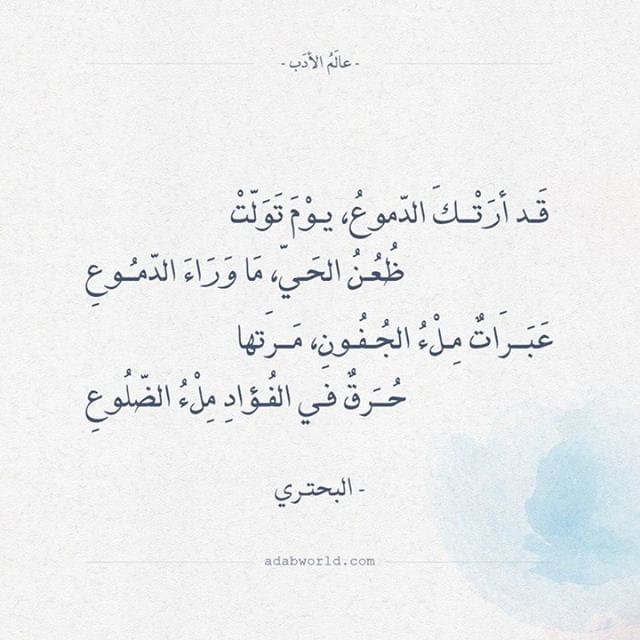 - عالَمُ الأدَب -
قَـد أرَتْـكَ الدّموعُ، يـوْمَ تَوَلّتْ
ظُعُـنُ الحَـيّ، مَا وَرَاءَ الدّمُـوعِ
عَبَـرَاتٌ مِـلْءُ الجُـفُـونِ، مَـرَتها
حُـرَقٌ فـي الفُـؤادِ مِلْءُ الضّلُوعِ
- البحتـري
adabworld.com